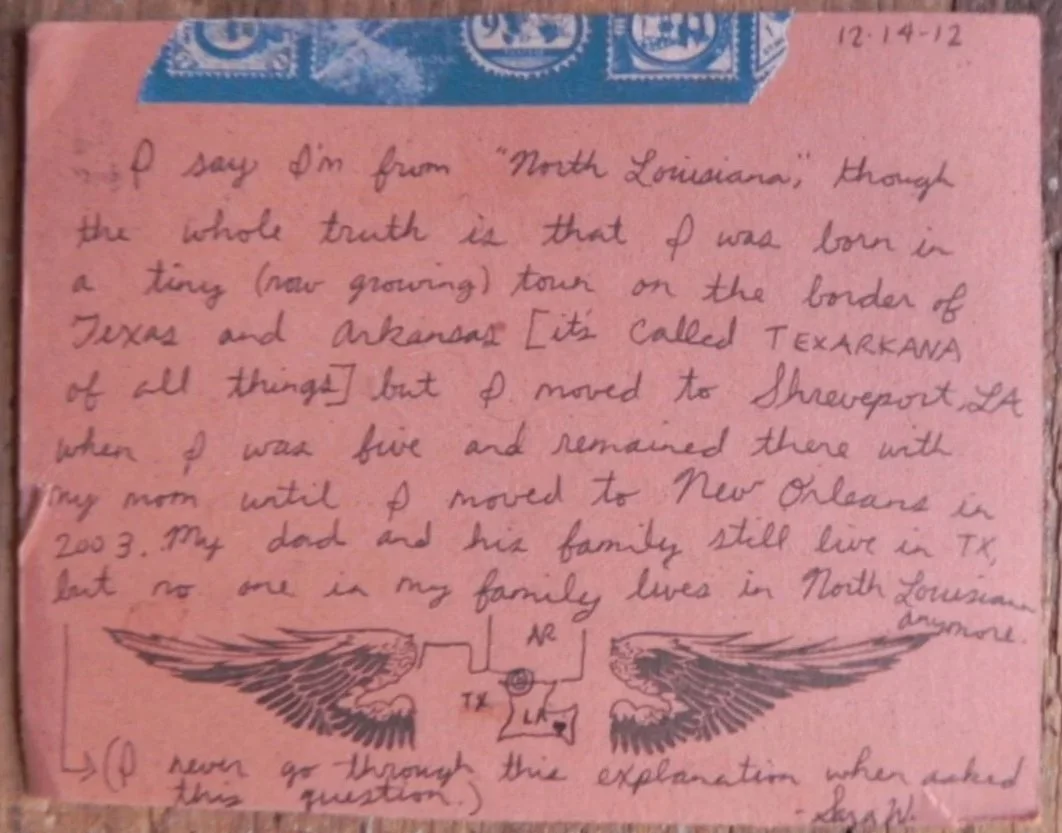 12-14-12
I say I'm from "North Louisiana," though
the whole truth is that I was born in
a tiny (now growing) town on the border of
Texas and Arkansas [it's called TEXARKANA
of all things] but I moved to Shreveport, LA
when I was five and remained there with
my mom until I moved to New Orleans in
2003. My dad and his family still live in TX,
but no one in my family lives in North Louisiana
anymore.
AR
TX
LA
(I never go through this explanation when asked
this question.)
- Sara W.